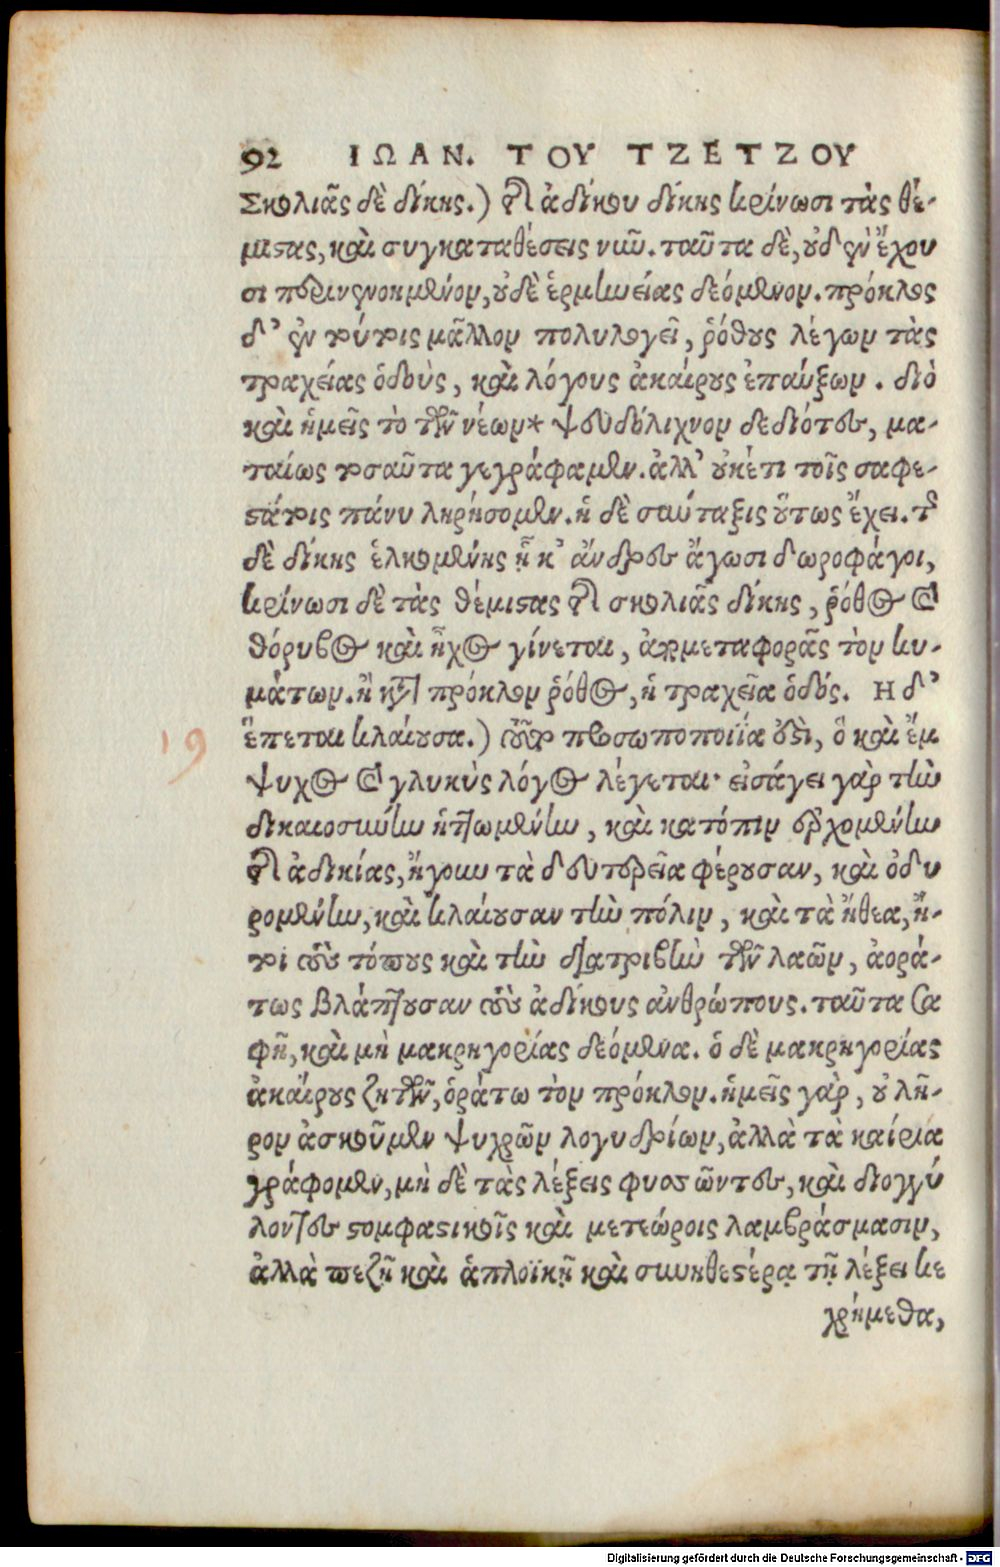 92 ΙΩΑΝ. ΤΟΥ ΤΖΕΤΖΟΥ
Σκολιᾶς δὲ δίκης.) διὰ ἀδίκου δίκης κρίνωσι τὰς θέ-
μιστας, καὶ συγκαταθέσεις νῦν. ταῦτα δὲ, οὐδὲν ἔχου
σι περινενοημένον, οὐδὲ ἑρμηνείας δεόμενον. πρόκλος
δ' ἐν τούτοις μᾶλλον πολυλογεῖ, ῥόθους λέγων τὰς
τραχείας ὁδοὺς, καὶ λόγους ἀκαίρους ἐπαύξων. διὸ
καὶ ἡμεῖς τὸ τῶν νέων* ψευδόλιχνον δεδιότες, μα-
ταίως τοσαῦτα γεγράφαμεν. ἀλλ' οὐκέτι τοῖς σαφε-
στάτοις πάνυ ληρήσομεν. ἡ δὲ σύνταξις οὕτως ἔχει. τῆς
δὲ δίκης ἑλκομένης ᾗ κ' ἄνδρες ἄγωσι δωροφάγοι,
κρίνωσι δὲ τὰς θέμιστας διὰ σκολιᾶς δίκης, ῥόθος καὶ
θόρυβος καὶ ἦχος γίνεται, ἀπὸ μεταφορᾶς τὸν κυ-
μάτων. ἢ κατὰ πρόκλον ῥόθος, ἡ τραχεῖα ὁδός. Η δ'
ἕπεται κλαίουσα.) τοῦτο προσωποποιΐα ἐστὶ, ὃ καὶ ἔμ
ψυχος καὶ γλυκὺς λόγος λέγεται· εἰσάγει γὰρ τὴν
δικαιοσύνην ἡττωμένην, καὶ κατόπιν ἐρχομένην
διὰ ἀδικίας, ἤγουν τὰ δευτερεῖα φέρουσαν, καὶ ὀδυ
ρομένην, καὶ κλαίουσαν τὴν πόλιν, καὶ τὰ ἤθεα, ἤ-
τοι τοὺς τόπους καὶ τὴν διατριβὴν τῶν λαῶν, ἀορά-
τως βλάπτουσαν τοὺς ἀδίκους ἀνθρώπους. ταῦτα σα
φῆ, καὶ μὴ μακρηγορίας δεόμενα. ὁ δὲ μακρηγορίας
ἀκαίρους ζητῶν, ὁράτω τὸν πρόκλον. ἡμεῖς γὰρ, οὐ λῆ-
ρον ἀσκοῦμεν ψυχρῶν λογυδρίων, ἀλλὰ τὰ καίρια
γράφομεν, μὴ δὲ τὰς λέξεις φυσῶντες, καὶ διογγύ
λοντες στομφαστικοῖς καὶ μετεώροις λαμβράσμασιν,
ἀλλὰ πεζῇ καὶ ἁπλοϊκῇ καὶ συνηθεστέρᾳ τῇ λέξει κε
χρήμεθα,
19
Digitalisierung gefördert durch die Deutsche Forschungsgemeinschaft - DFG